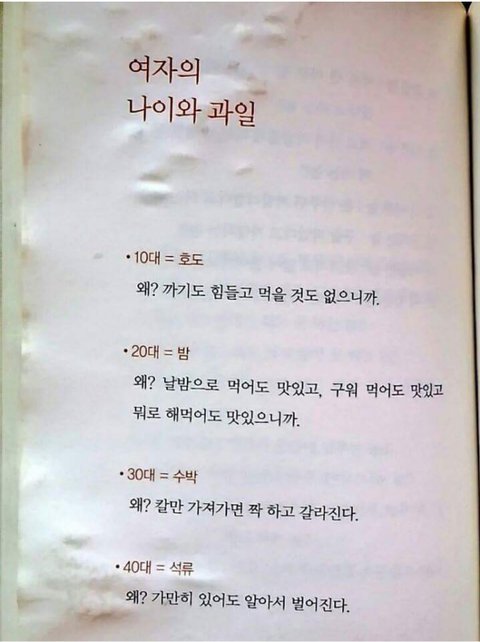 여자의
나이와 과일
• 10대 = 호도
왜? 까기도 힘들고 먹을 것도 없으니까.
• 20대 = 밤
왜? 날밤으로 먹어도 맛있고, 구워 먹어도 맛있고
뭐로 해먹어도 맛있으니까.
• 30대 = 수박
왜? 칼만 가져가면 짝 하고 갈라진다.
• 40대 = 석류
왜? 가만히 있어도 알아서 벌어진다.